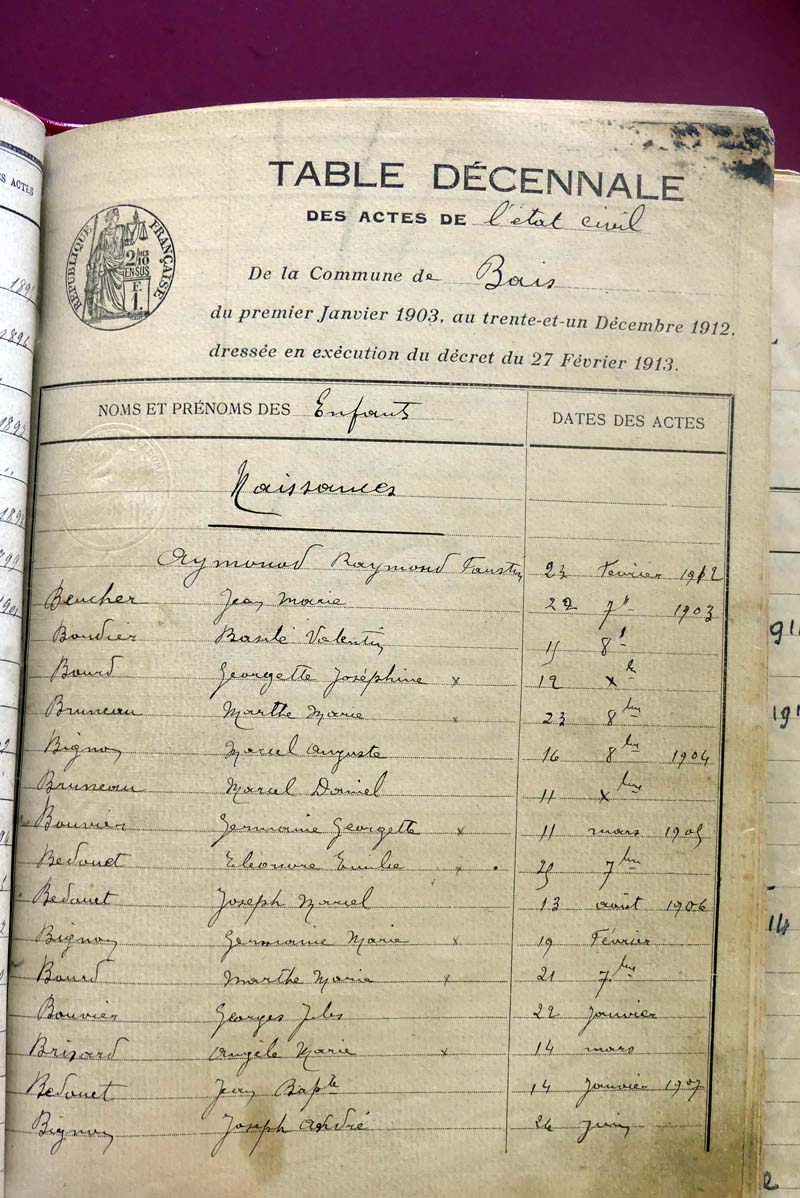 S ACTES
1896
TABLE DÉCENNALE
DES ACTES DE l'état civil
RÉPUBLIQUE FRANÇAISE
2/10
EN SUS
F.
1.
De la Commune de Bais
du premier Janvier 1903, au trente-et-un Décembre 1912,
dressée en exécution du décret du 27 Février 1913.
NOMS ET PRÉNOMS DES Enfants DATES DES ACTES
Naissances
Aymonod Raymond Faustin 23 Février 1912
Beucher Jean Marie 22 7b 1903
Boudier Basile Valentin 15 8b
Bourd Georgette Joséphine x 12 xb
Bruneau Marthe Marie x 23 8bre
Bignon Marcel Auguste 16 8bre 1904
Bruneau Marcel Daniel 11 xbre
Bouvier Germaine Georgette x 11 mars 1905
Bedouet Eléonore Emilie x 25 7bre
Bedouet Joseph Marcel 13 août 1906
Bignon Germaine Marie x 19 Février
Bourd Marthe Marie x 21 7bre
Bouvier Georges Jules 22 Janvier
Brisard Angèle Marie x 14 mars
Bedouet Jean Bapte 14 Janvier 1907
Bignon Joseph André 26 Juin